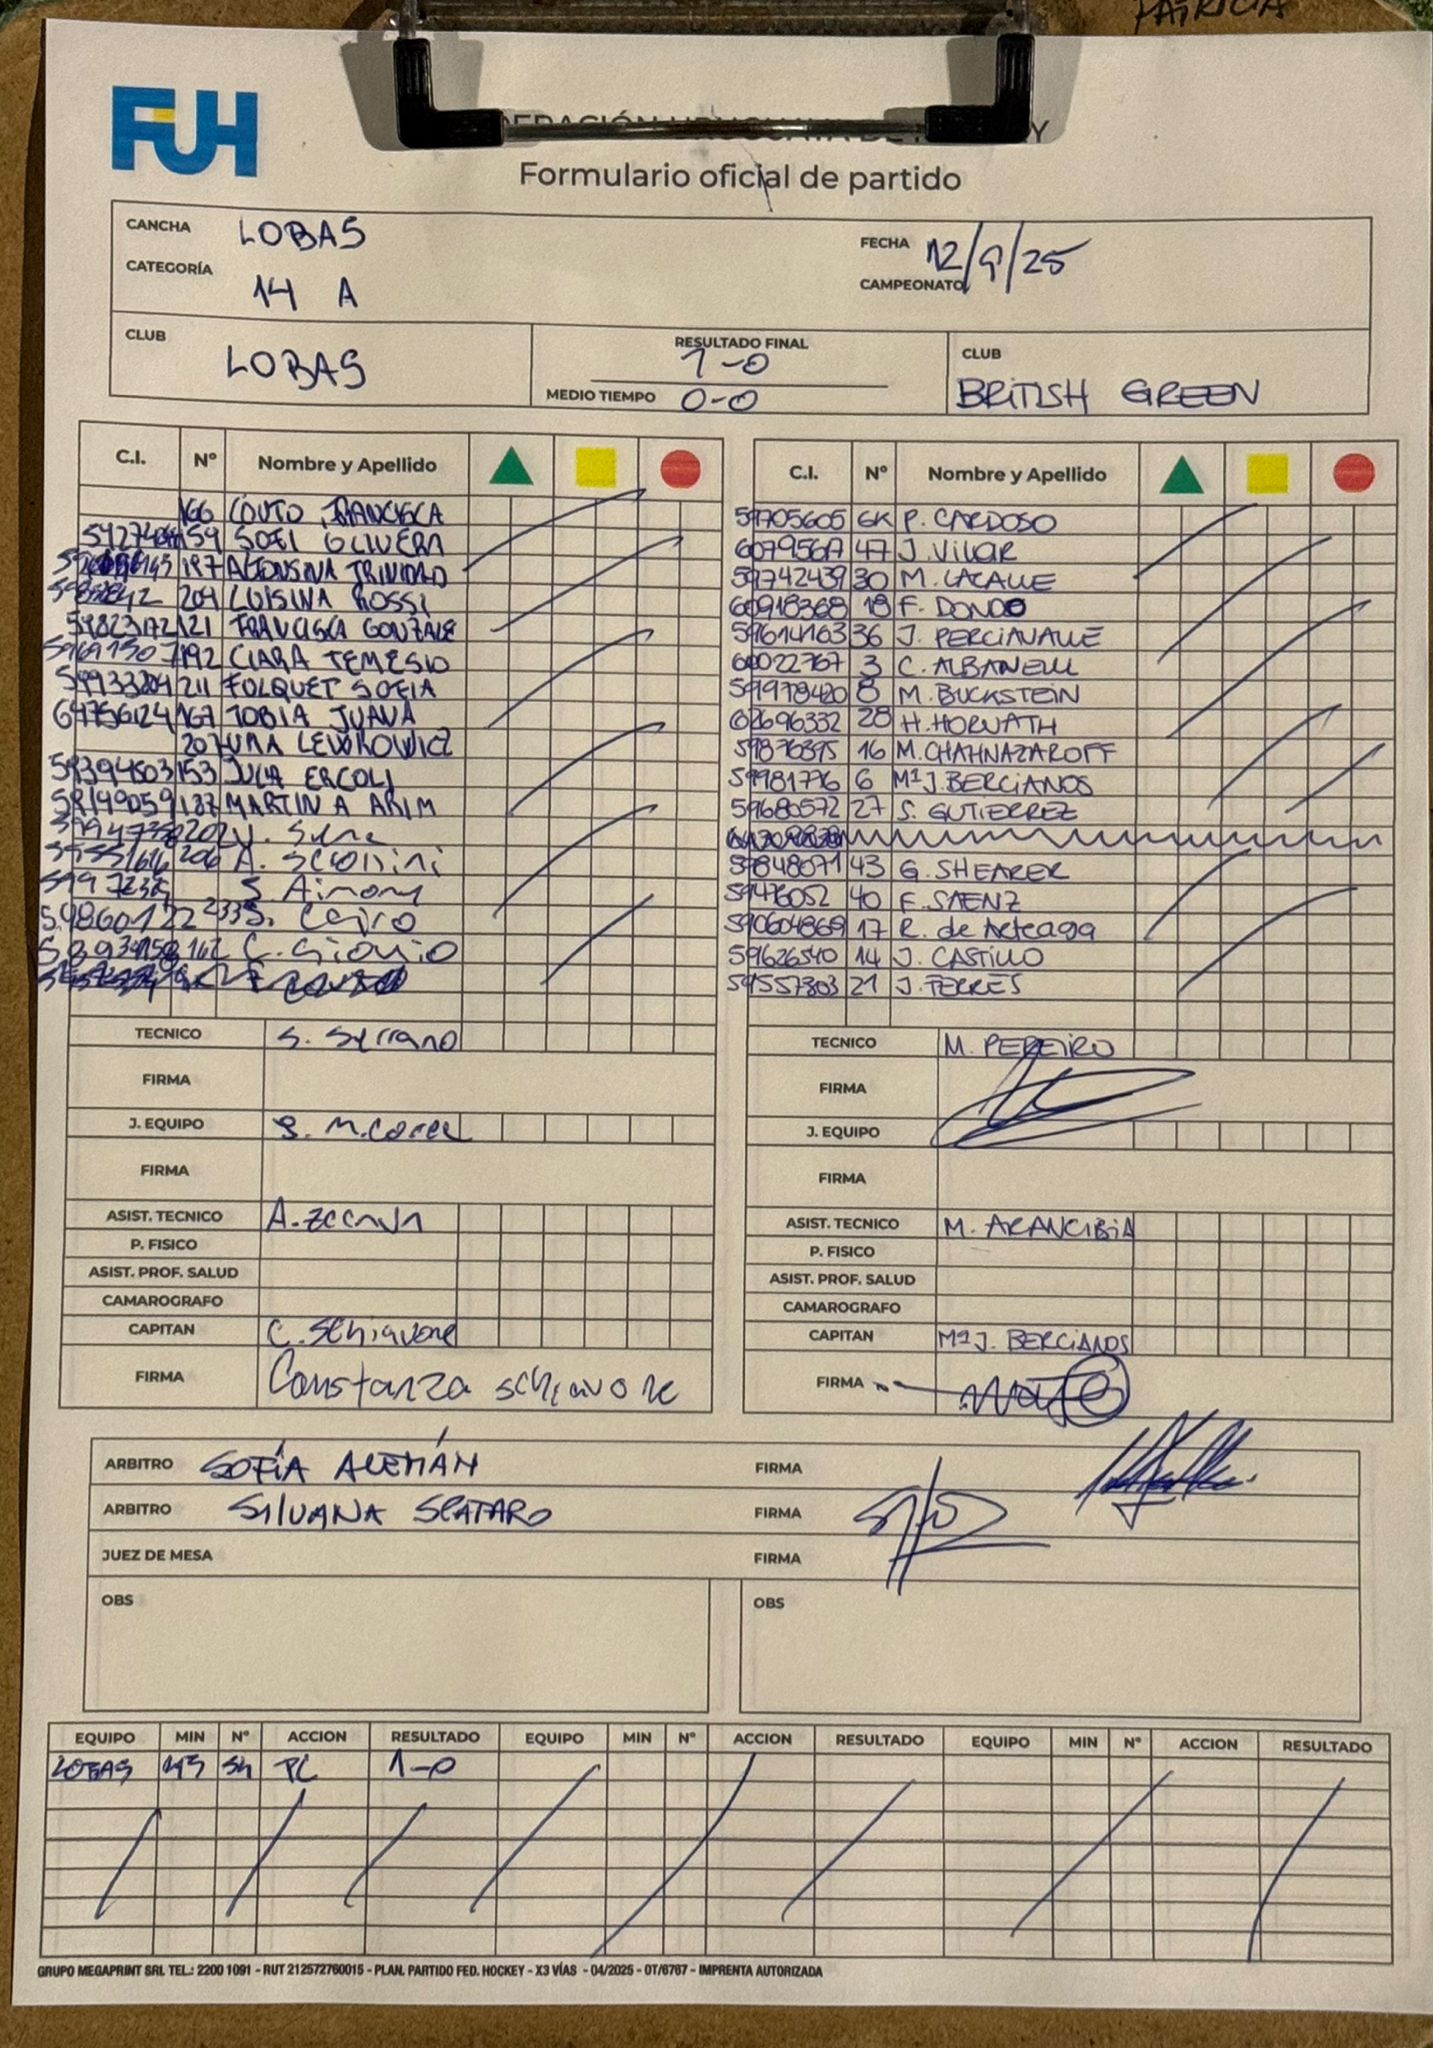 PATRICIA
FUH
Formulario oficial de partido
CANCHA LOBAS
FECHA 12/9/25
CATEGORÍA 14 A
CAMPEONATO
CLUB LOBAS
RESULTADO FINAL 1-0
MEDIO TIEMPO 0-0
CLUB BRITISH GREEN
C.I. Nº Nombre y Apellido
166 COUTO, FRANCISCA
159 SOFI OLIVERA
197 ALFONSINA TRINIDAD
204 LUISINA ROSSI
59823172 121 FRANCISCA GONZALE
192 CLARA TEMESIO
59933204 211 FOLQUET SOFIA
64756124 167 TOBIA JUANA
207
59394503 153 JULIA ERCOLI
58149059 187 MARTINA ARIM
202
206 A.
S.
59860122 233 S. Cairo
162 C.
TECNICO S. Serrano
FIRMA
J. EQUIPO
FIRMA
ASIST. TECNICO
P. FISICO
ASIST. PROF. SALUD
CAMAROGRAFO
CAPITAN C. Schiavone
FIRMA Constanza schiavone
C.I. Nº Nombre y Apellido
59705605 GK P. CARDOSO
6079567 47 J. VILAR
59742439 30 M. LACALLE
60918368 18 F. DONDO
59614163 36 J. PERCIAVALLE
60022767 3 C. ALBANELL
59978420 8 M. BUCKSTEIN
62696332 28 H. HORVATH
59876395 16 M. CHAHNAZAROFF
59981776 6 Mª J. BERCIANOS
59680572 27 S. GUTIERREZ
57848071 43 G. SHEARER
59476052 40 F. SAENZ
590604869 17 R. de Arteaga
59626540 14 J. CASTILLO
59557803 21 J. FERRES
TECNICO M. PEREIRO
FIRMA
J. EQUIPO
FIRMA
ASIST. TECNICO M. ARANCIBIA
P. FISICO
ASIST. PROF. SALUD
CAMAROGRAFO
CAPITAN Mª J. BERCIANOS
FIRMA
ARBITRO SOFÍA ALEMÁN FIRMA
ARBITRO SILVANA SPATARO FIRMA
JUEZ DE MESA FIRMA
OBS OBS
EQUIPO MIN Nº ACCION RESULTADO EQUIPO MIN Nº ACCION RESULTADO EQUIPO MIN Nº ACCION RESULTADO
LOBAS PC 1-0
GRUPO MEGAPRINT SRL TEL.: 2200 1091 - RUT 212572760015 - PLAN. PARTIDO FED. HOCKEY - X3 VÍAS - 04/2025 - OT/6767 - IMPRENTA AUTORIZADA